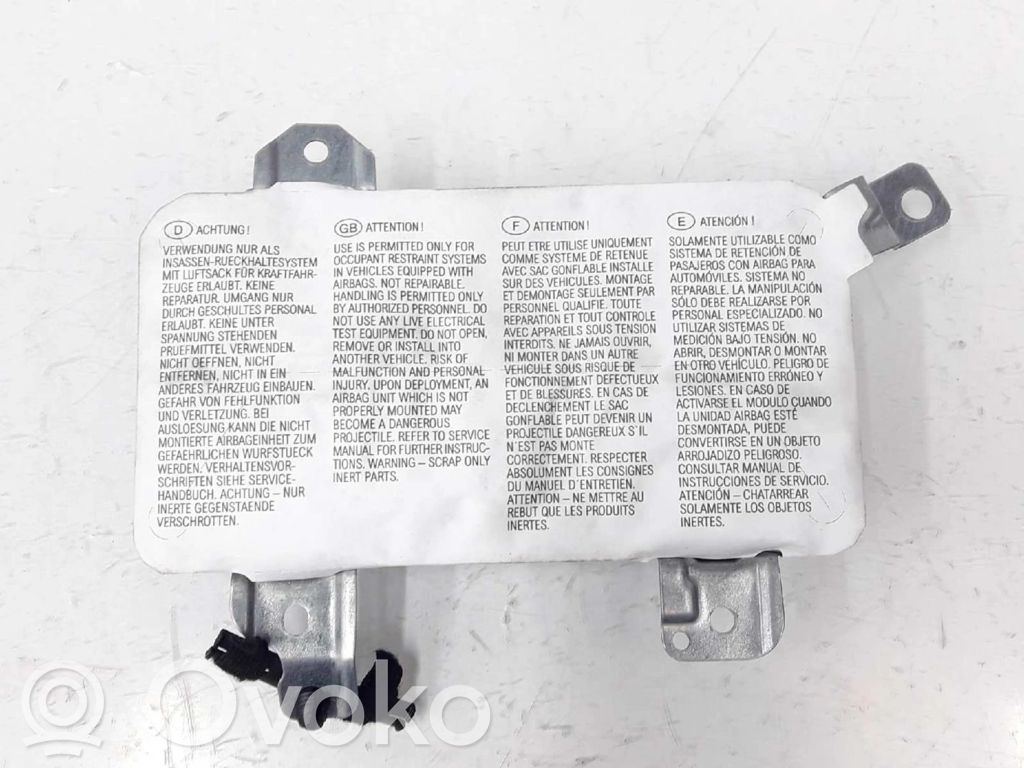 D ACHTUNG!
VERWENDUNG NUR ALS
INSASSEN-RUECKHALTESYSTEM
MIT LUFTSACK FÜR KRAFTFAHR-
ZEUGE ERLAUBT. KEINE
REPARATUR. UMGANG NUR
DURCH GESCHULTES PERSONAL
ERLAUBT. KEINE UNTER
SPANNUNG STEHENDEN
PRUEFMITTEL VERWENDEN.
NICHT OEFFNEN, NICHT
ENTFERNEN, NICHT IN EIN
ANDERES FAHRZEUG EINBAUEN.
GEFAHR VON FEHLFUNKTION
UND VERLETZUNG. BEI
AUSLOESUNG KANN DIE NICHT
MONTIERTE AIRBAGEINHEIT ZUM
GEFAEHRLICHEN WURFSTUECK
WERDEN. VERHALTENSVOR-
SCHRIFTEN SIEHE SERVICE-
HANDBUCH. ACHTUNG – NUR
INERTE GEGENSTAENDE
VERSCHROTTEN.
GB ATTENTION!
USE IS PERMITTED ONLY FOR
OCCUPANT RESTRAINT SYSTEMS
IN VEHICLES EQUIPPED WITH
AIRBAGS. NOT REPAIRABLE.
HANDLING IS PERMITTED ONLY
BY AUTHORIZED PERSONNEL. DO
NOT USE ANY LIVE ELECTRICAL
TEST EQUIPMENT. DO NOT OPEN,
REMOVE OR INSTALL INTO
ANOTHER VEHICLE. RISK OF
MALFUNCTION AND PERSONAL
INJURY. UPON DEPLOYMENT, AN
AIRBAG UNIT WHICH IS NOT
PROPERLY MOUNTED MAY
BECOME A DANGEROUS
PROJECTILE. REFER TO SERVICE
MANUAL FOR FURTHER INSTRUC-
TIONS. WARNING – SCRAP ONLY
INERT PARTS.
F ATTENTION!
PEUT ETRE UTILISE UNIQUEMENT
COMME SYSTEME DE RETENUE
AVEC SAC GONFLABLE INSTALLE
SUR DES VEHICULES. MONTAGE
ET DEMONTAGE SEULEMENT PAR
PERSONNEL QUALIFIE. TOUTE
REPARATION ET TOUT CONTROLE
AVEC APPAREILS SOUS TENSION
INTERDITS. NE JAMAIS OUVRIR,
NI MONTER DANS UN AUTRE
VEHICULE SOUS RISQUE DE
FONCTIONNEMENT DEFECTUEUX
ET DE BLESSURES. EN CAS DE
DECLENCHEMENT LE SAC
GONFLABLE PEUT DEVENIR UN
PROJECTILE DANGEREUX S'IL
N'EST PAS MONTE
CORRECTEMENT. RESPECTER
ABSOLUMENT LES CONSIGNES
DU MANUEL D'ENTRETIEN.
ATTENTION – NE METTRE AU
REBUT QUE LES PRODUITS
INERTES.
E ATENCIÓN!
SOLAMENTE UTILIZABLE COMO
SISTEMA DE RETENCIÓN DE
PASAJEROS CON AIRBAG PARA
AUTOMÓVILES. SISTEMA NO
REPARABLE. LA MANIPULACIÓN
SÓLO DEBE REALIZARSE POR
PERSONAL ESPECIALIZADO. NO
UTILIZAR SISTEMAS DE
MEDICIÓN BAJO TENSIÓN. NO
ABRIR, DESMONTAR O MONTAR
EN OTRO VEHÍCULO. PELIGRO DE
FUNCIONAMIENTO ERRÓNEO Y
LESIONES. EN CASO DE
ACTIVARSE EL MODULO CUANDO
LA UNIDAD AIRBAG ESTÉ
DESMONTADA, PUEDE
CONVERTIRSE EN UN OBJETO
ARROJADIZO PELIGROSO.
CONSULTAR MANUAL DE
INSTRUCCIONES DE SERVICIO.
ATENCIÓN – CHATARREAR
SOLAMENTE LOS OBJETOS
INERTES.
Ovoko